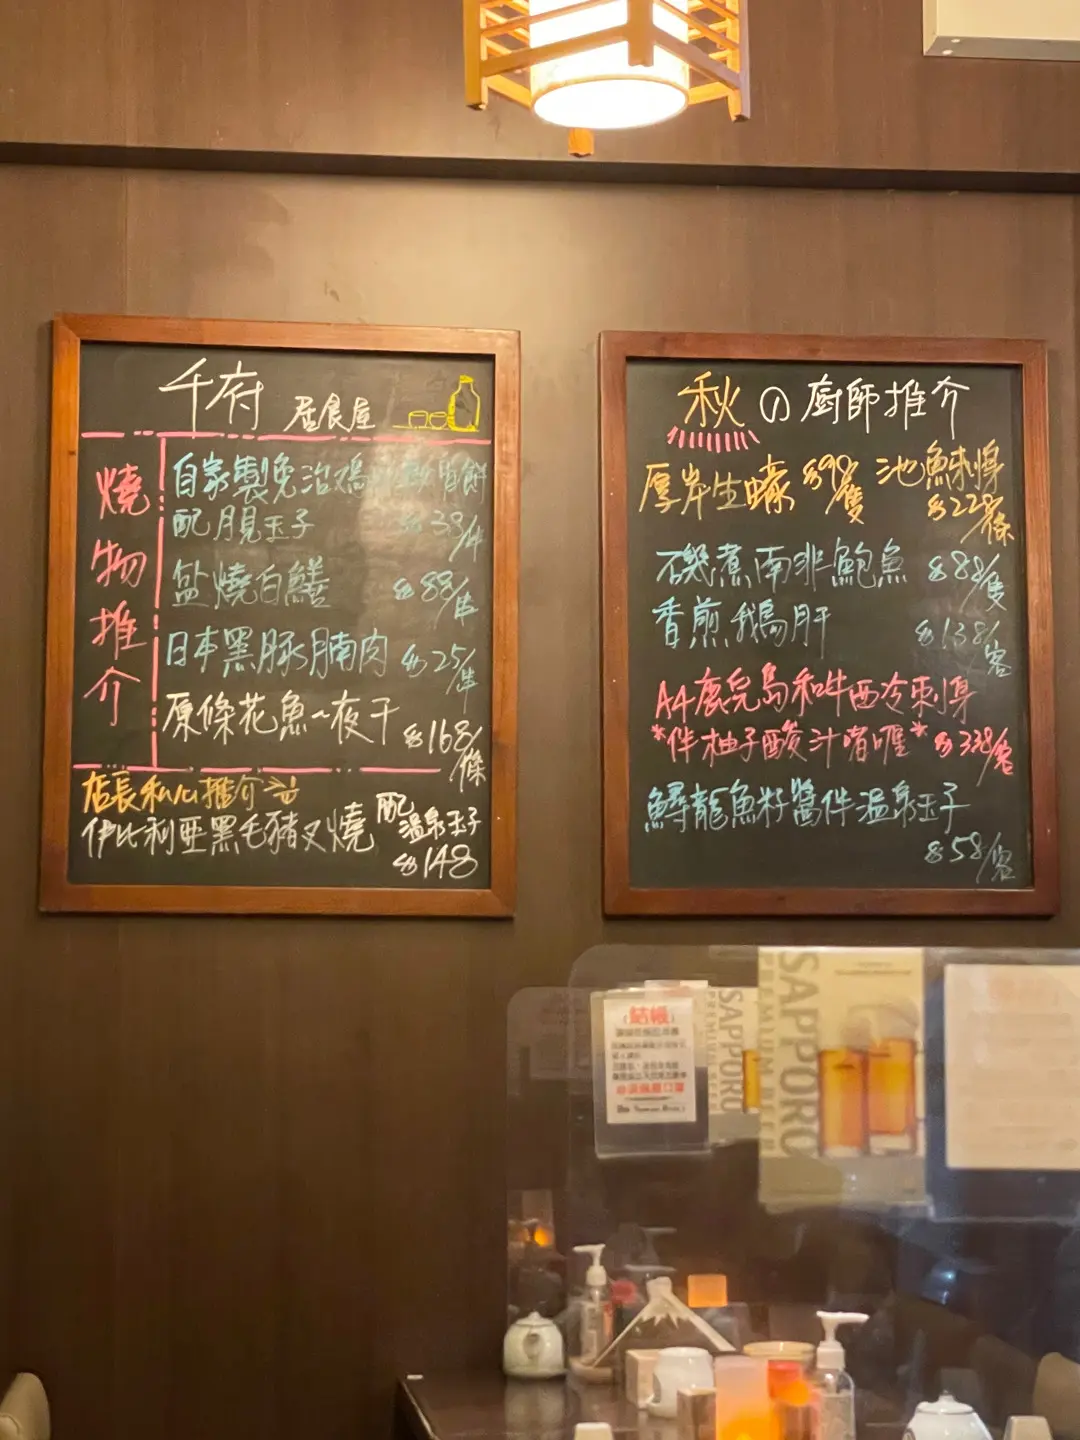 千府 居食屋
燒物推介
自家製免治鷄軟骨餅
配月見玉子 $38/件
盐燒白鱔 $88/串
日本黑豚腩肉 $25/串
原條花魚一夜干 $168/條
店長私心推介
伊比利亞黑毛豬叉燒
配溫泉玉子
$148
秋の廚師推介
厚岸生蠔 $98/隻 池魚刺身
$228/條
磯煮南非鮑魚 $88/隻
香煎鵝肝 $138/客
A4鹿兒島和牛西冷刺身
*伴柚子酸汁啫喱* $338/客
鱘龍魚籽醬伴溫泉玉子
$58/客
結帳
SAPPORO
PREMIUM BEER
SAPPORO
PREMIUM BEER